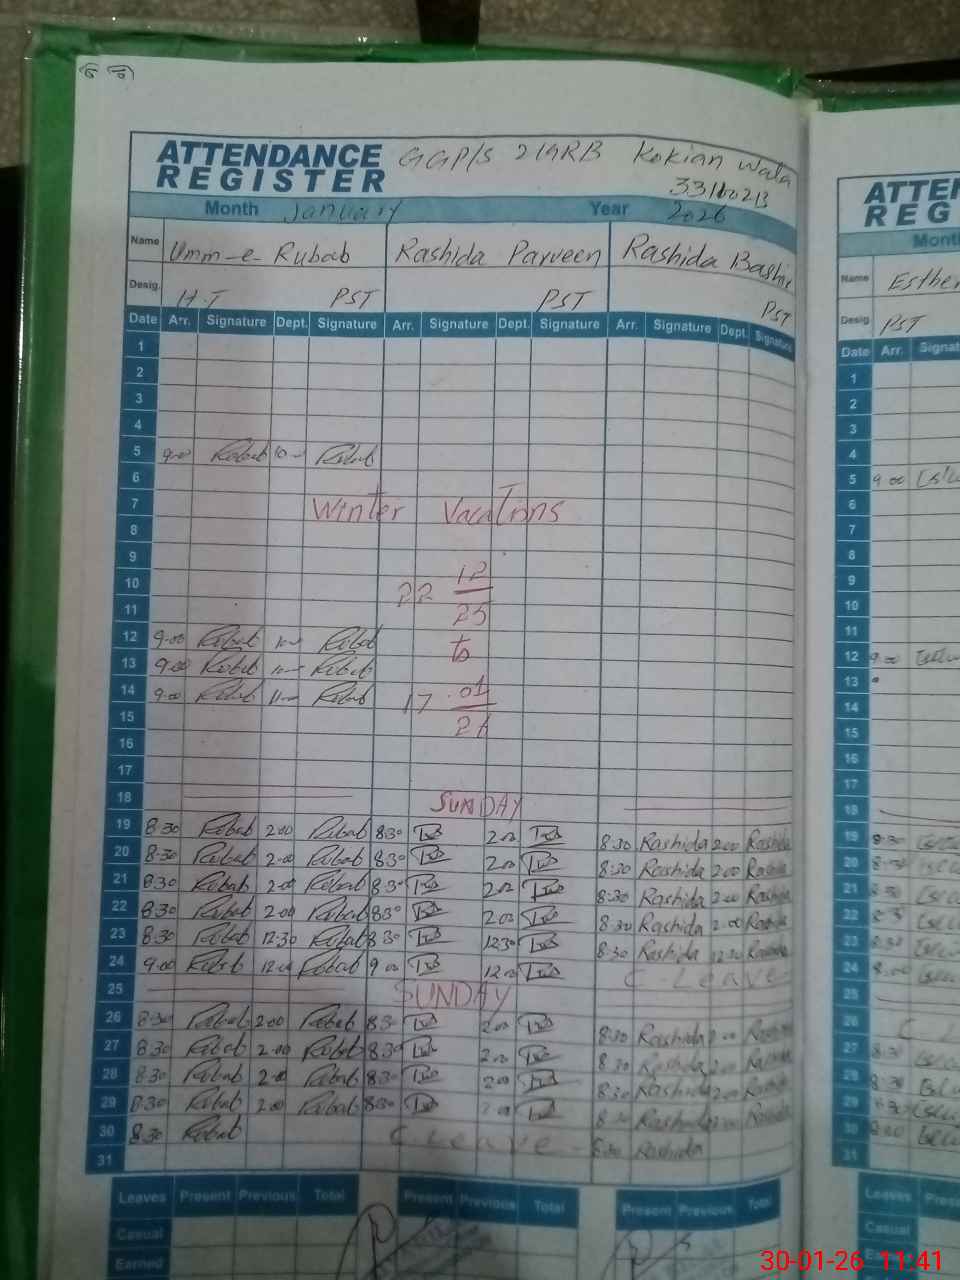 ATTENDANCE REGISTER GGP/S 219RB Kokian Wala
33160213
Month January Year 2026
Name Umm-e-Rubab Rashida Parveen Rashida Bashir
Desig. H.T PST PST PST
Date Arr. Signature Dept. Signature Arr. Signature Dept. Signature Arr. Signature Dept. Signature
1
2
3
4
5 9-00 Rubab 10- Rubab
6
7 Winter Vacations
8
9
10 22 12
11 25
12 9-00 Rubab 10- Rubab to
13 9-00 Rubab 10- Rubab
14 9-00 Rubab 11- Rubab 17 01
15 26
16
17
18 SUNDAY
19 8-30 Rubab 2-00 Rubab 8-30 2-00 8-30 Rashida 2-00 Rashida
20 8-30 Rubab 2-00 Rubab 8-30 2-00 8-30 Rashida 2-00 Rashida
21 8-30 Rubab 2-00 Rubab 8-30 2-00 8-30 Rashida 2-00 Rashida
22 8-30 Rubab 2-00 Rubab 8-30 2-00 8-30 Rashida 2-00 Rashida
23 8-30 Rubab 12-30 Rubab 8-30 12-30 8-30 Rashida 12-30 Rashida
24 9-00 Rubab 12-00 Rubab 9-00 12-00 C-Leave
25 SUNDAY
26 8-30 Rubab 2-00 Rubab 8-30 2-00 8-30 Rashida 2-00 Rashida
27 8-30 Rubab 2-00 Rubab 8-30 2-00 8-30 Rashida 2-00 Rashida
28 8-30 Rubab 2-00 Rubab 8-30 2-00 8-30 Rashida 2-00 Rashida
29 8-30 Rubab 2-00 Rubab 8-30 2-00 8-30 Rashida 2-00 Rashida
30 8-30 Rubab C-Leave- 8-30 Rashida
31
Leaves Present Previous Total Present Previous Total Present Previous Total
Casual
Earned
Name Esther
Desig PST
Date Arr.
1
2
3
4
5 9-00
6
7
8
9
10
11
12 9-00
13
14
15
16
17
18
19 8-30
20 8-30
21 8-30
22
23 8-30
24
25
26
27 8-30
28 8-30
29
30
31
Leaves
Casual
30-01-26 11:41